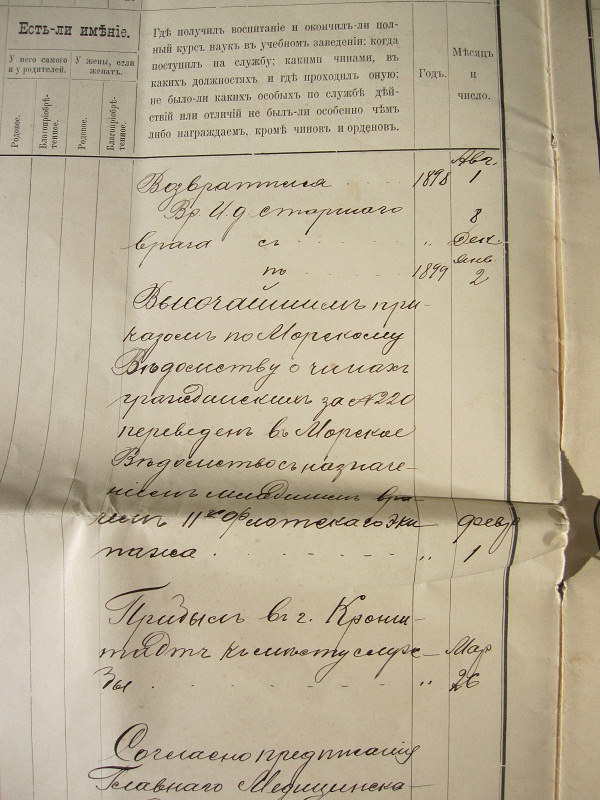 Есть-ли имѣніе.
У него самого и у родителей.
У жены, если женатъ.
Родовое.
Благопріобрѣтенное.
Родовое.
Благопріобрѣтенное.
Гдѣ получилъ воспитаніе и окончилъ-ли пол-
ный курсъ наукъ въ учебномъ заведеніи; когда
поступилъ на службу; какими чинами, въ
какихъ должностяхъ и гдѣ проходилъ оную;
не было-ли какихъ особыхъ по службѣ дѣй-
ствій или отличій не былъ-ли особенно чѣмъ
либо награждаемъ, кромѣ чиновъ и орденовъ.
Годъ.
Мѣсяцъ
и
число.
Возвратился 1898 Авг. 1
Вр. И. д. старшаго 8
врача съ „ Дек.
по 1899 Янв. 2
Высочайшимъ при-
казомъ по Морскому
Вѣдомству о чинахъ
гражданскихъ за №220
переведенъ въ Морское
Вѣдомство съ назначе-
ніемъ младшимъ вра-
чемъ 11го Флотскаго Эки-
пажа „ Февр 1
Прибылъ въ г. Крон-
штадтъ къ мѣсту служ-
бы „ Мар 26
Согласно предписанія
Главнаго Медицинска-